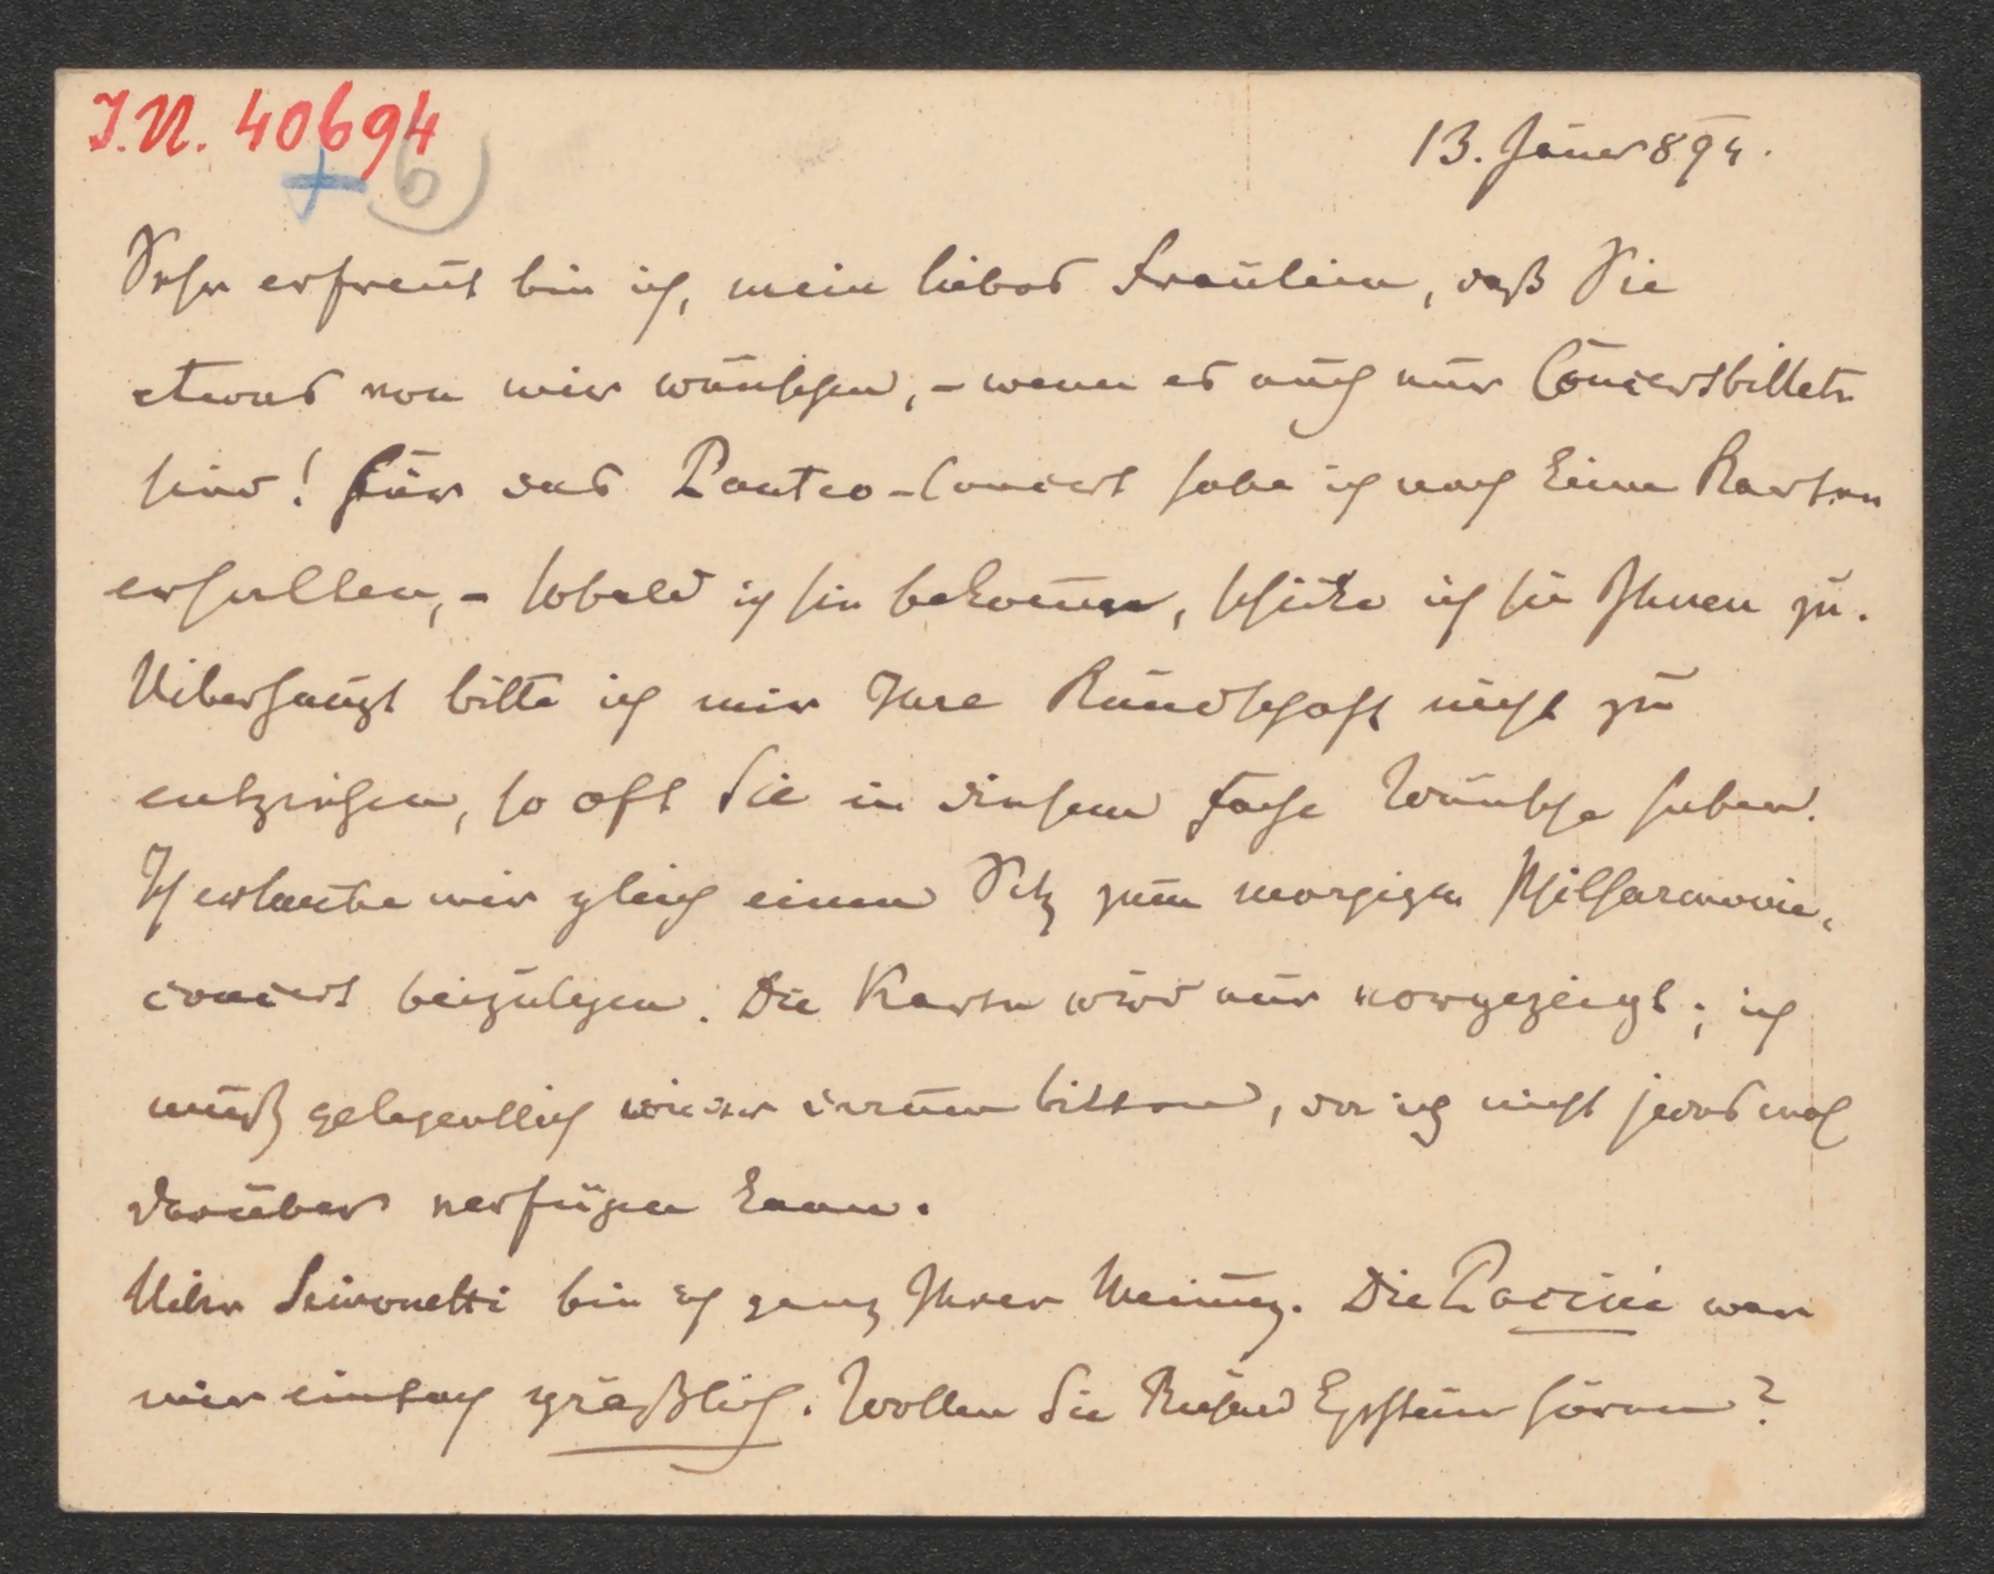 I.N. 40694
6)
13. Jäner 894.
Sehr erfreut bin ich, mein liebes Fräulein, daß Sie
etwas von mir wünschen, – wenn es auch nur Concertbillete
sind! Für das Panteo-Concert habe ich noch keine Karten
erhalten, – sobald ich sie bekomme, schicke ich sie Ihnen zu.
Uiberhaupt bitte ich mir Ihre Kundschaft nicht zu
entziehen, so oft Sie in diesem Fache Wünsche haben.
Ich erlaube mir gleich einen Sitz zum morgigen Philharmonie-
concert beizulegen. Die Karte wird nur vorgezeigt; ich
muß gelegentlich wieder darum bitten, da ich nicht jedesmal
darüber verfügen kann.
Uiber Simonetti bin ich ganz Ihrer Meinung. Die Pacini war
mir einfach gräßlich. Wollen Sie Epstein hören?